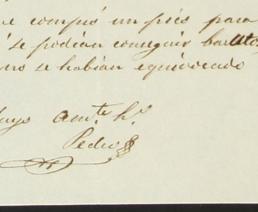 compré un piés para
se podian conseguir baratos
se habian equivocado
am.te h.o
Pedro